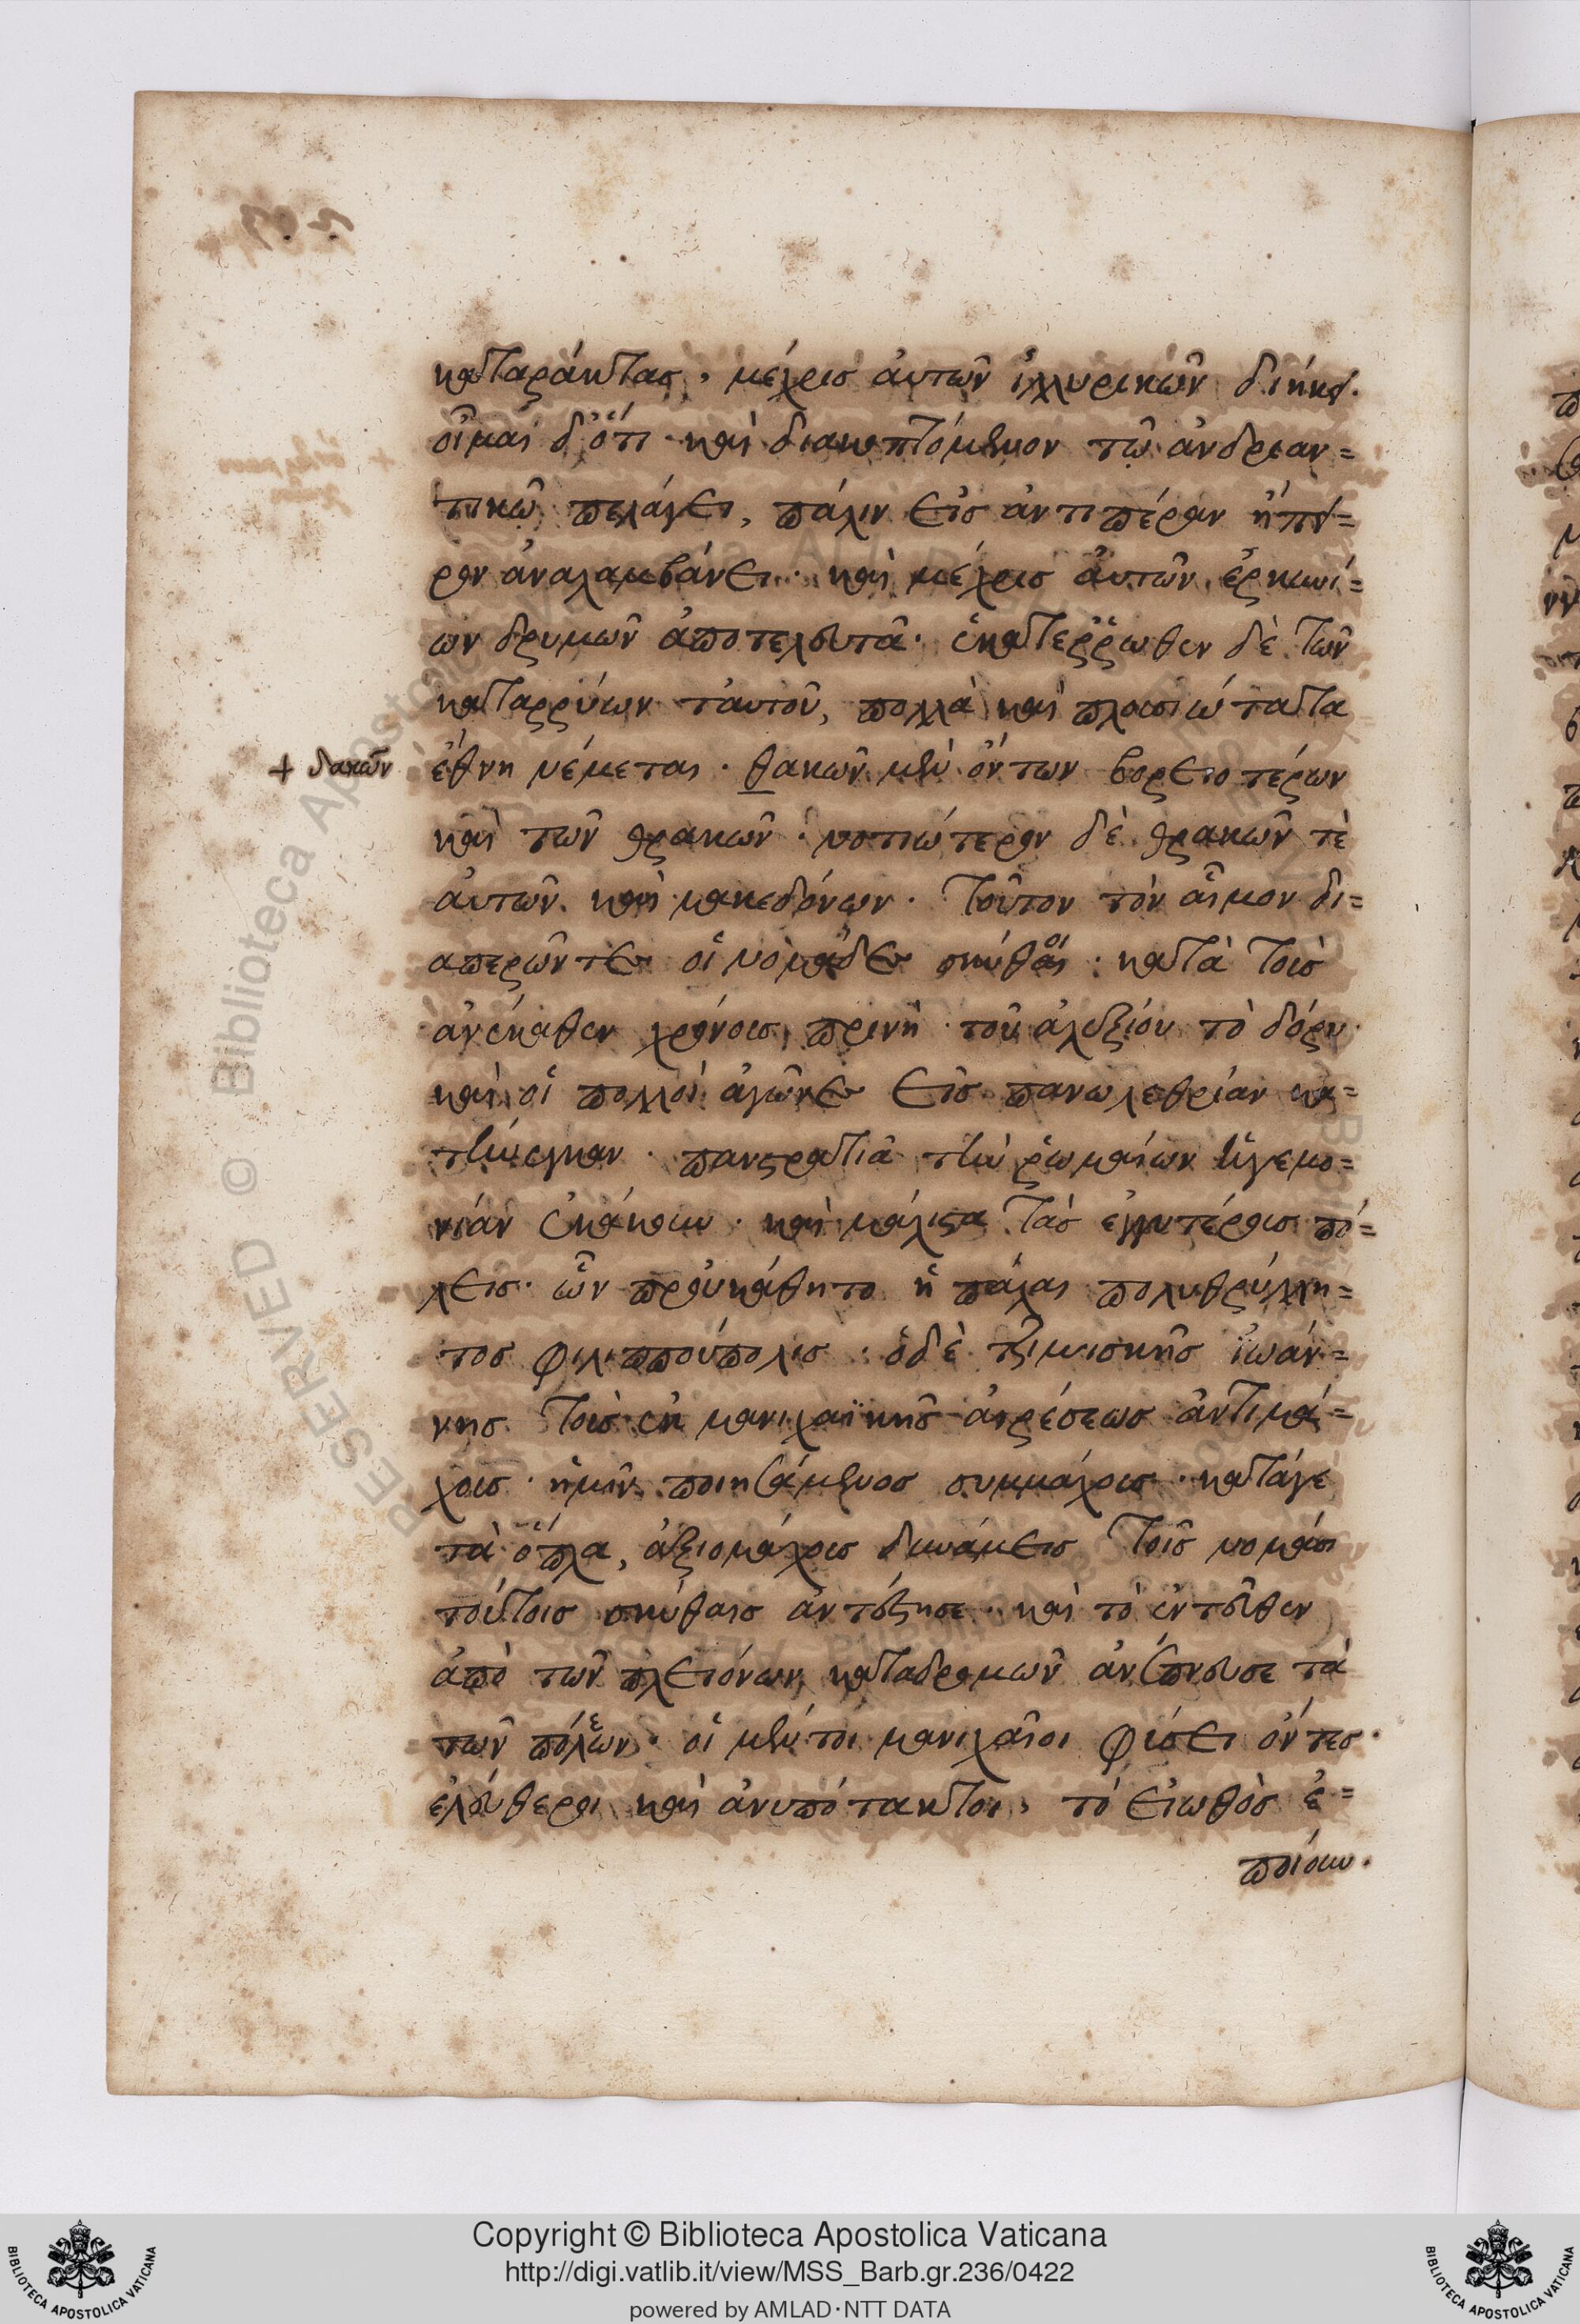 καταράκτας, μέχρις αυτών ἰλλυρικῶν διήκει.
οἶμαι δ' ὅτι καὶ διακοπτόμενον τῷ ἀνδριαν=
τικῷ πελάγει, πάλιν εἰς ἀντιπέραν ἤπει=
ρον ἀναλαμβάνει· καὶ μέχρις ἀυτῶν ἐρκωνί=
ων δρυμῶν ἀποτελευτᾶ· ἑκατέῤῥωθεν δὲ τῶν
καταρρύων τ' αυτοῦ, πολλὰ καὶ πλουσιώτατα
+ δακῶν
ἔθνη νέμεται· θακῶν μὲν ὄντων βορειοτέρων
καὶ τῶν θρακῶν· νοτιώτερον δὲ θρακῶν τὲ
ἀυτῶν καὶ μακεδόνων· Τοῦτον τὸν αἷμον δι=
απερῶντες οἱ νομάδες σκύθαι· κατὰ τοὺς
ἀνέκαθεν χρόνους πρινὴ τοῦ ἀλεξίου τὸ δόρυ
καὶ οἱ πολλοὶ ἀγῶνες εἰς πανωλεθρίαν κα=
τήνεγκαν· πανστρατιᾶ τὴν ῥωμαίων ἡγεμο=
νίαν ἐκάκουν· καὶ μάλιστα τὰς ἐγγυτέρας πό=
λεις· ὧν προυκάθητο ἡ πάλαι πολυθρύλλη=
τος φιλιππούπολις· ὁδὲ τζιμισκῆς ἰωάν=
νης τοὺς ἐκ μανιχαϊκῆς ἀιρέσεως ἀντιμά=
χους· ἡμῖν ποιησάμενος συμμάχους· κατάγε
τὰ ὅπλα, ἀξιομάχους δυνάμεις τοῖς νομάσι
τούτοις σκύθαις ἀντέστησε· καὶ τὸ ἐντεῦθεν
ἀπὸ τῶν πλειόνων καταδρομῶν ἀνέπνευσε τὰ
τῶν πόλεων· οἱ μέντοι μανιχαῖοι φύσει ὄντες
ἐλεύθεροι καὶ ἀνυπότακτοι, τὸ εἰωθὸς ἐ=
ποίουν.
Copyright © Biblioteca Apostolica Vaticana
http://digi.vatlib.it/view/MSS_Barb.gr.236/0422
powered by AMLAD·NTT DATA